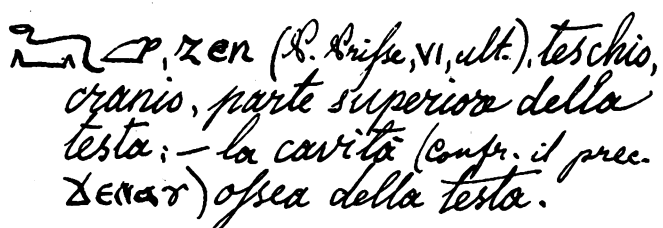 , zen (P. Prisse, VI, ult.), teschio,
cranio, parte superiore della
testa; — la cavità (confr. il prec.
) ossea della testa.